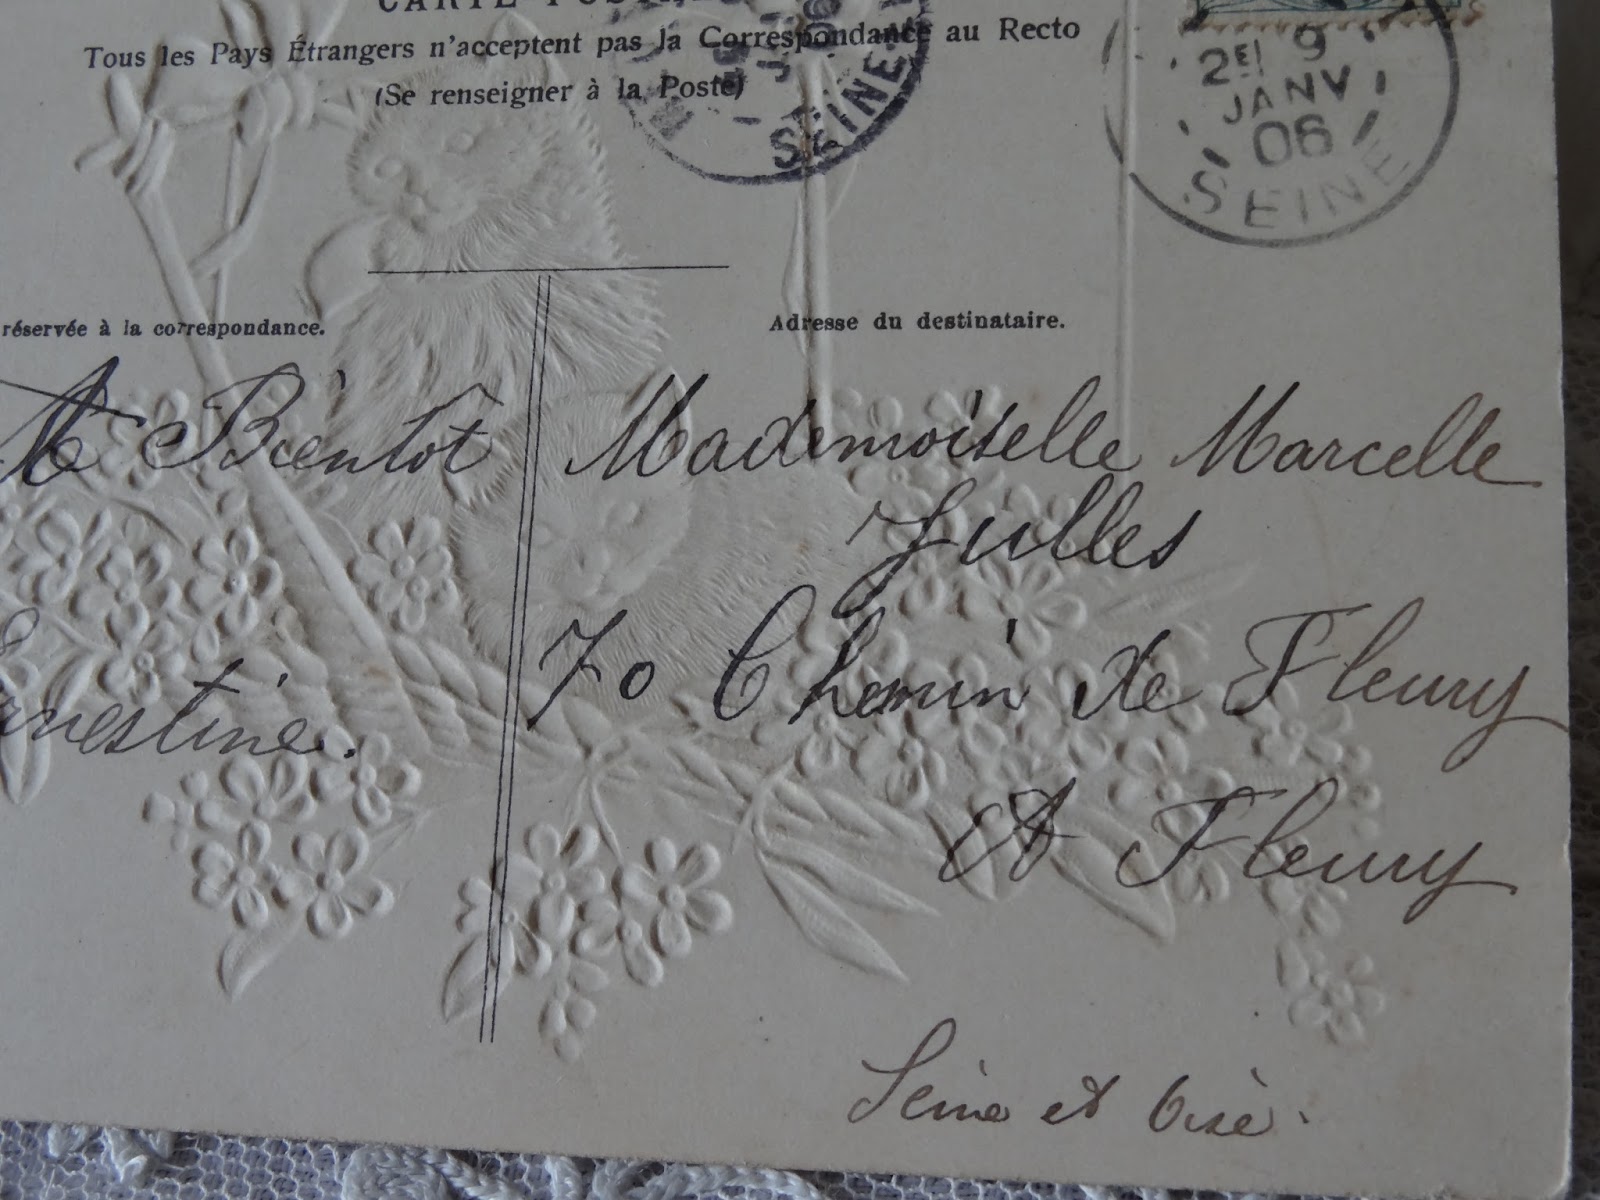 CARTE POSTALE
Tous les Pays Étrangers n'acceptent pas la Correspondance au Recto
(Se renseigner à la Poste)
SEINE
2E 9
JANV
06
SEINE
réservée à la correspondance.
Adresse du destinataire.
A Bientôt
Ernestine.
Mademoiselle Marcelle
Julles
70 Chemin de Fleury
A Fleury
Seine et Oise.